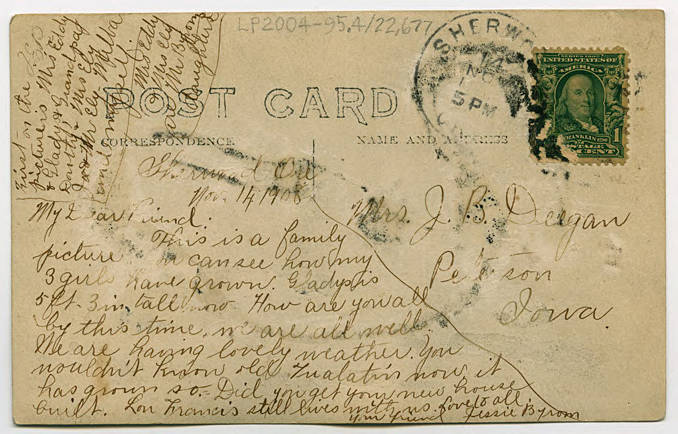 LP2004-95.4/22,677
First on the
pictures Mrs Eddy
& Gladys & Grandpa
Mrs Ely
and Mr Ely Melba
and myself
Mrs Eddy
& Mrs Ely
are Mr Byrom's
daughters
SHERWO
14
NO
5 PM
SERIES 1902
UNITED STATES OF
AMERICA
FRANKLIN
1
POSTAGE
CENT
POST CARD
CORRESPONDENCE
NAME AND ADDRESS
Sherwood Ore
Nov 14 1908
My Dear Friend
This is a family
picture can see how my
3 girls have grown. Gladys is
5 ft. 3 in tall now How are you all
by this time. we are all well.
We are having lovely weather. You
wouldn't know old Tualatin now it
has grown so.- Did you get your new house
built. Lon Francis still lives with us. Love to all.
Your friend Jessie Byrom
Mrs. J. B. Deegan
Peterson
Iowa.